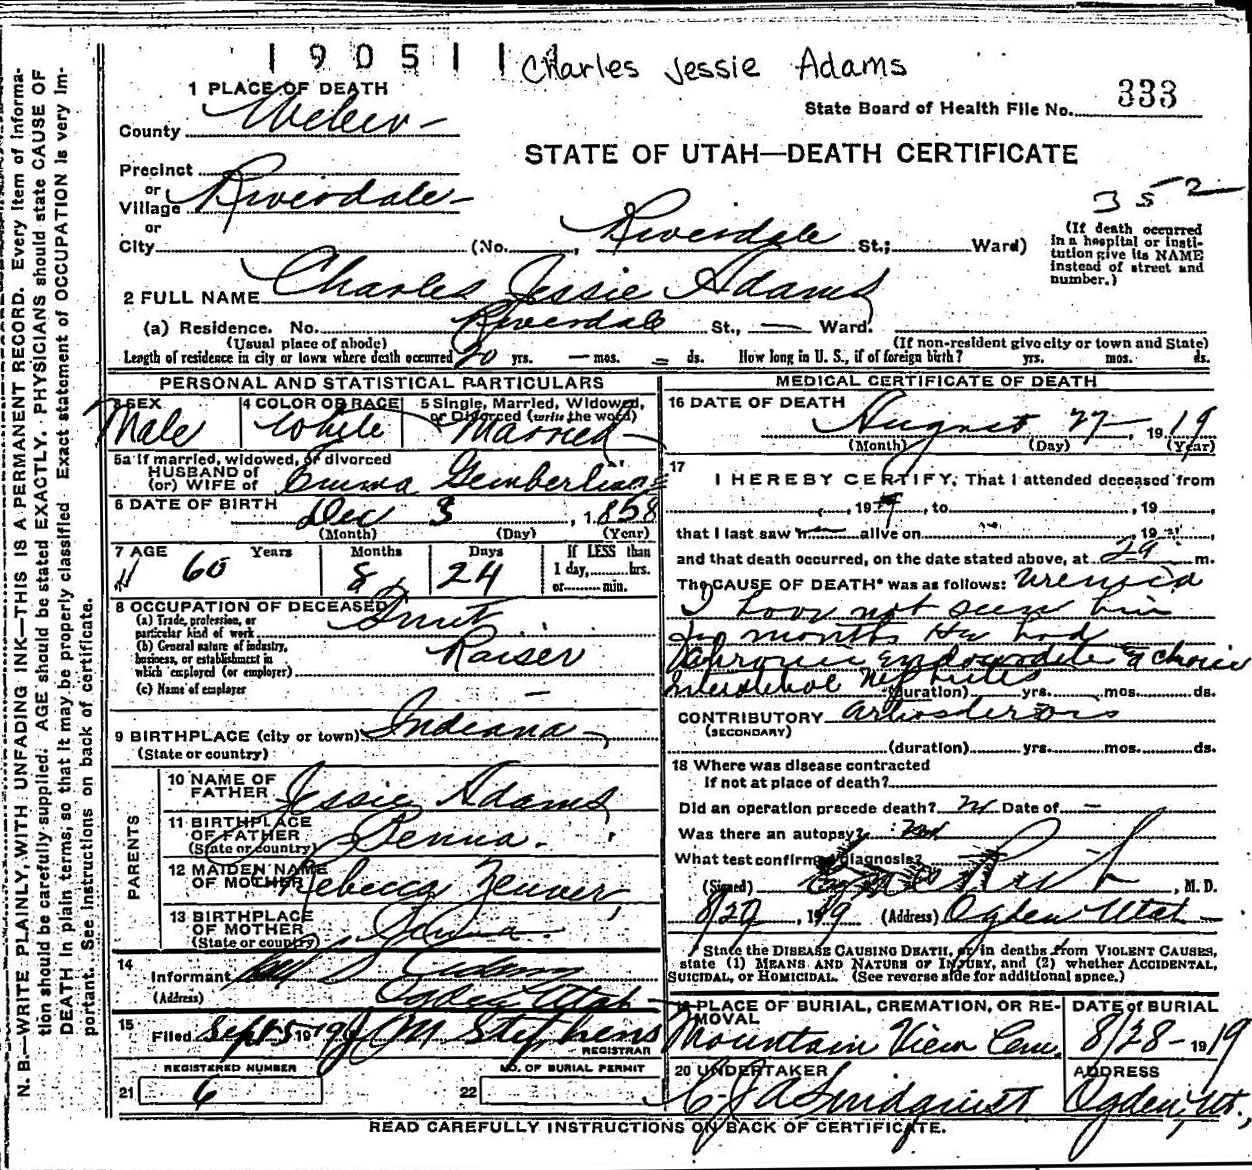 190511
Charles Jessie Adams
1 PLACE OF DEATH
State Board of Health File No. 333
County Weber
STATE OF UTAH—DEATH CERTIFICATE
Precinct
or
Village Riverdale
352
or
City (No. , Riverdale St.; Ward)
(If death occurred in a hospital or insti-
tution give its NAME instead of street and number.)
2 FULL NAME Charles Jessie Adams
(a) Residence. No. Riverdale St., — Ward.
(Usual place of abode) (If non-resident give city or town and State)
Length of residence in city or town where death occurred 20 yrs. — mos. — ds. How long in U. S., if of foreign birth? yrs. mos. ds.
PERSONAL AND STATISTICAL PARTICULARS
3 SEX Male
4 COLOR OR RACE White
5 Single, Married, Widowed, or Divorced (write the word) Married
5a If married, widowed, or divorced
HUSBAND of
(or) WIFE of Emma
6 DATE OF BIRTH Dec 3, 1858
(Month) (Day) (Year)
7 AGE Years Months Days If LESS than
60 8 24 1 day, hrs.
or min.
8 OCCUPATION OF DECEASED
(a) Trade, profession, or
particular kind of work Fruit
(b) General nature of industry,
business, or establishment in
which employed (or employer) Raiser
(c) Name of employer —
9 BIRTHPLACE (city or town) Indiana
(State or country)
PARENTS
10 NAME OF FATHER Jessie Adams
11 BIRTHPLACE OF FATHER Penna.
(State or country)
12 MAIDEN NAME OF MOTHER Rebecca
13 BIRTHPLACE OF MOTHER
(State or country)
14
Informant
(Address) Ogden Utah
15
Filed Sept 5 1919 J M Stephens
REGISTRAR
REGISTERED NUMBER
21 6
NO. OF BURIAL PERMIT
22
MEDICAL CERTIFICATE OF DEATH
16 DATE OF DEATH
August 27, 1919
(Month) (Day) (Year)
17
I HEREBY CERTIFY, That I attended deceased from
, 19 , to , 19 ,
that I last saw h alive on 19 ,
and that death occurred, on the date stated above, at m.
The CAUSE OF DEATH* was as follows: Uremia
I have not seen him
for months He had
Interstitial Nephritis
(duration) yrs. mos. ds.
CONTRIBUTORY
(SECONDARY)
(duration) yrs. mos. ds.
18 Where was disease contracted
If not at place of death?
Did an operation precede death? Date of —
Was there an autopsy?
What test confirmed diagnosis?
(Signed) , M. D.
8/29, 1919 (Address) Ogden Utah
*State the DISEASE CAUSING DEATH, or in deaths from VIOLENT CAUSES,
state (1) MEANS AND NATURE OF INJURY, and (2) whether ACCIDENTAL,
SUICIDAL, or HOMICIDAL. (See reverse side for additional space.)
19 PLACE OF BURIAL, CREMATION, OR RE-
MOVAL
Mountain View Cem.
DATE of BURIAL
8/28-1919
20 UNDERTAKER
Lindquist
ADDRESS
Ogden, Ut.,
READ CAREFULLY INSTRUCTIONS ON BACK OF CERTIFICATE.
N. B.—WRITE PLAINLY, WITH UNFADING INK—THIS IS A PERMANENT RECORD. Every item of informa-
tion should be carefully supplied. AGE should be stated EXACTLY. PHYSICIANS should state CAUSE OF
DEATH in plain terms, so that it may be properly classified Exact statement of OCCUPATION is very im-
portant. See instructions on back of certificate.